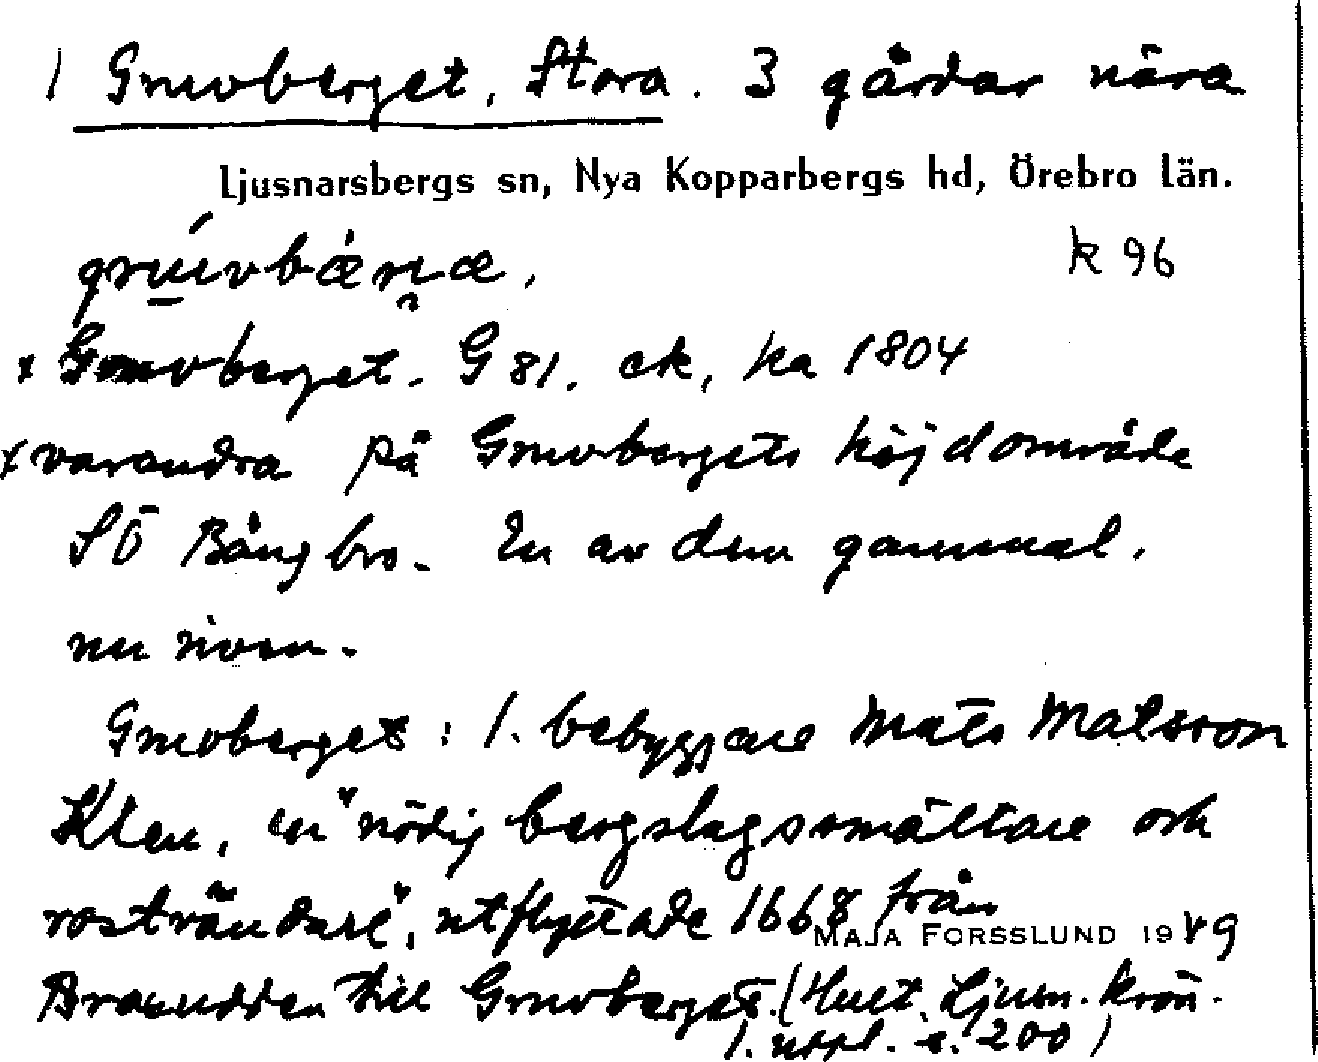 1 Gruvberget, Stora. 3 gårdar nära
Ljusnarsbergs sn, Nya Kopparbergs hd, Örebro län.
k 96
x Gruvberget. G 81. ek, ka 1804
x varandra på Gruvbergets höjdområde
SÖ Bångbro. En av dem gammal.
nu riven.
Gruvberget: 1. bebyggare Mats Matsson
Klen, en "nödig bergslagssmältare och
rostvändare", utflyttade 1668 från
MAJA FORSSLUND 1949
Braxudden till Gruvberget. (Hult. Ljusn. krön.
1. uppl. s. 200)